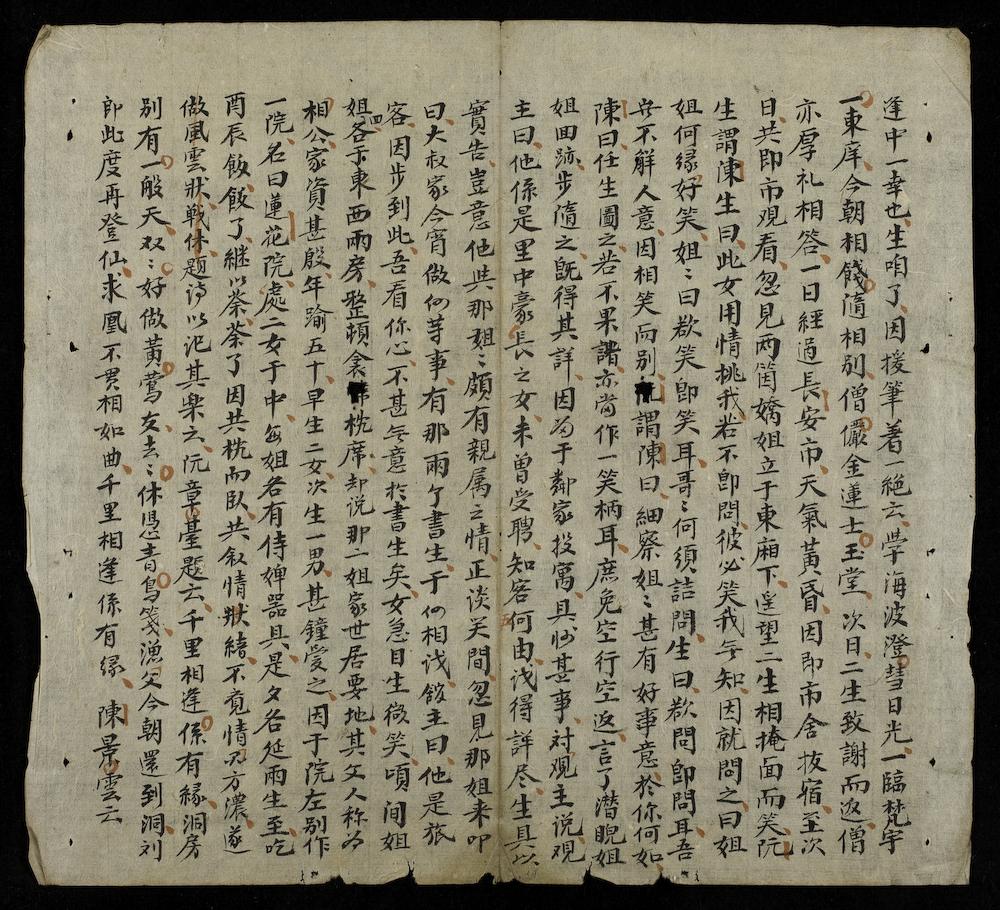 逢中一幸也生咱了因援筆着一絕云學海波澄彗日光一臨梵宇
一東庠今朝相餞隨相別僧儼金蓮士玉堂次日二生致謝而返僧
亦厚礼相答一日經過長安市天氣黃昏因即市舍投宿至次
日共即市观看忽見两箇嬌姐立于東廂下遥望二生相掩面而笑阮
生謂陳生曰此女用情挑我若不即問彼必笑我無知因就問之曰姐
姐何緣好笑姐〻曰欲笑即笑耳哥〻何須詰問生曰欲問即問耳吾
無不解人意因相笑而别阮謂陳曰細察姐〻甚有好事意於你何如
陳曰任生圖之若不果諧亦當作一笑柄耳庶免空行空返言了潜睨姐
姐回跡步隨之既得其詳因為于鄰家投寓具約甚事对观主说观
主曰他係是里中豪長之女未曾受聘知客何由識得詳尽生具以
實告豈意他與那姐〻頗有親属之情正谈笑間忽見那姐来叩
曰大叔家今宵做何等事有那两个書生于何相识館主曰他是旅
客因步到此吾看你心不甚無意於書生矣女急目生微笑頃间姐
姐各于東西两房整頓衾枕席却说那二姐家世居要地其父人称为
相公家資甚殷年踰五十早生二女次生一男甚鐘愛之因于院左别作
一院名曰蓮花院處二女于中每姐各有侍婢噐具是夕各延两生至吃
酉辰飯飯了継以茶茶了因共枕而臥共叙情狀繞不竟情况方濃遂
做風雲狀戰休題詩以記其樂云阮章臺题云千里相逢係有緣洞房
别有一般天双〻好做黃鶯友去〻休慿青鳥箋漁父今朝還到洞刘
郎此度再登仙求凰不貫相如曲千里相逢係有緣 陳景雲云